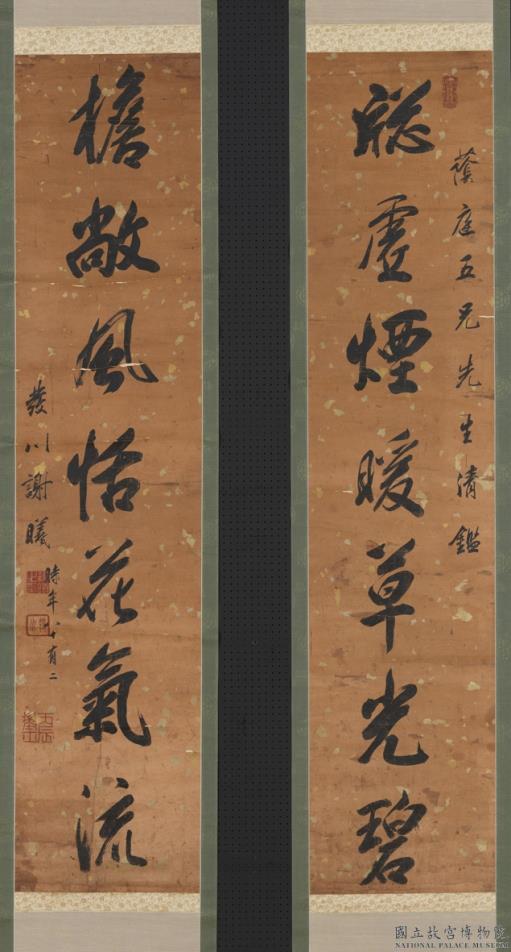 蔭庭五兄先生清鑑
窓虛煙暖草光碧
檐敞風恬花氣流
發川謝曦時年八十有二
國立故宮博物院
NATIONAL PALACE MUSEUM